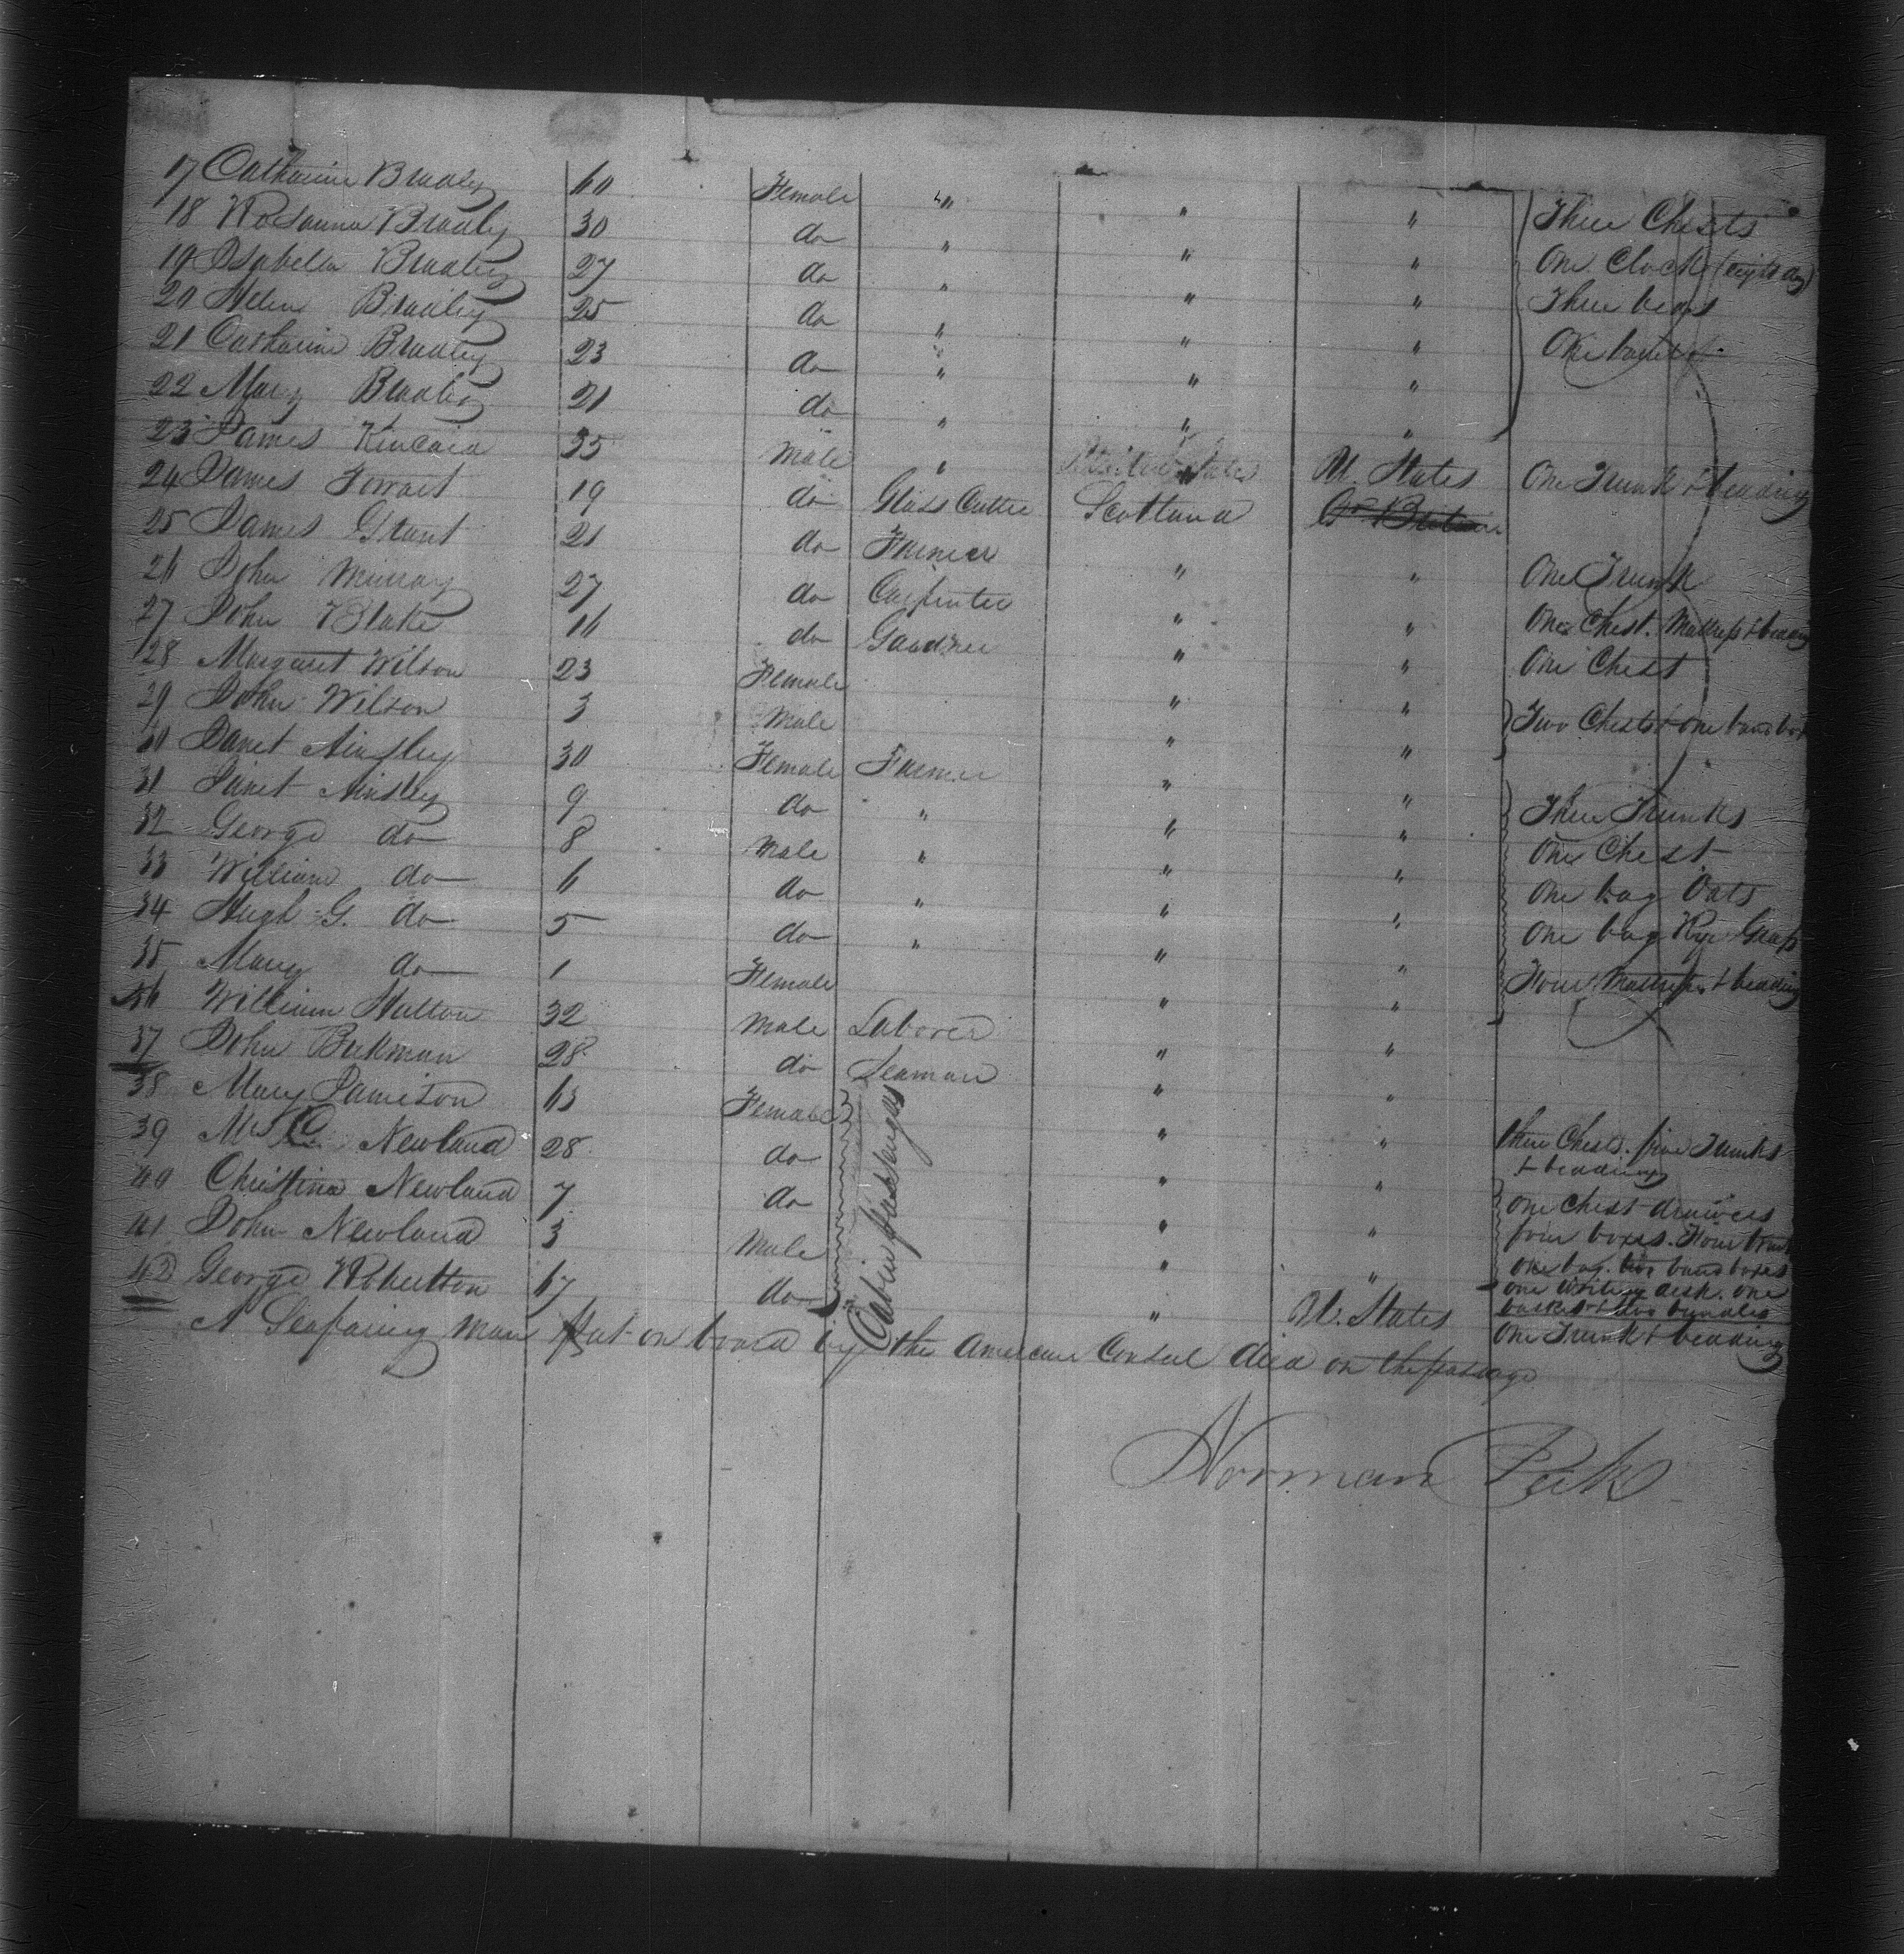 17 Catharine Bradley 60 Female " " " Three Chests
18 Rosanna Bradley 30 do " " " One Clock (eight day)
19 Isabella Bradley 27 do " " " Three beds
20 Helen Bradley 25 do " " " One
21 Catharine Bradley 23 do " " "
22 Mary Bradley 21 do " " "
23 James Kincaid 35 Male " United States U. States One Trunk & beading
24 James Forrart 19 do Glass Cutter Scotland Gt Britain
25 James Grant 21 do Farmer " " One Trunk
26 John Murray 27 do Carpenter " " One Chest. Mattrass & beading
27 John Blake 16 do Gardner " " One Chest
28 Margaret Wilson 23 Female " "
29 John Wilson 3 Male " " Two Chests & one band box
30 Janet Ainsley 30 Female Farmer " "
31 Janet Ainsley 9 do " " " Three Trunks
32 George do 8 Male " " " One Chest
33 William do 6 do " " " One bag Oats
34 Hugh G. do 5 do " " " One bag Rye Grass
35 Mary do 1 Female " " Four Mattrass & beading
36 William Hutton 32 Male Laborer " "
37 John Bukman 28 do Seaman " "
38 Mary Jamieson 63 Female " " three Chests. five Trunks & beading
39 Mrs C. Newland 28 do " " one Chest drawers
40 Christina Newland 7 do " " four boxes. Four
41 John Newland 3 Male " " one bag. two band boxes
one writing desk. one
basket & two bundles
42 George Robertson 67 do " U. States One Trunk & beading
Cabin passengers
A Seafaring man put on board by the American Consul died on the passage
Norman Peck